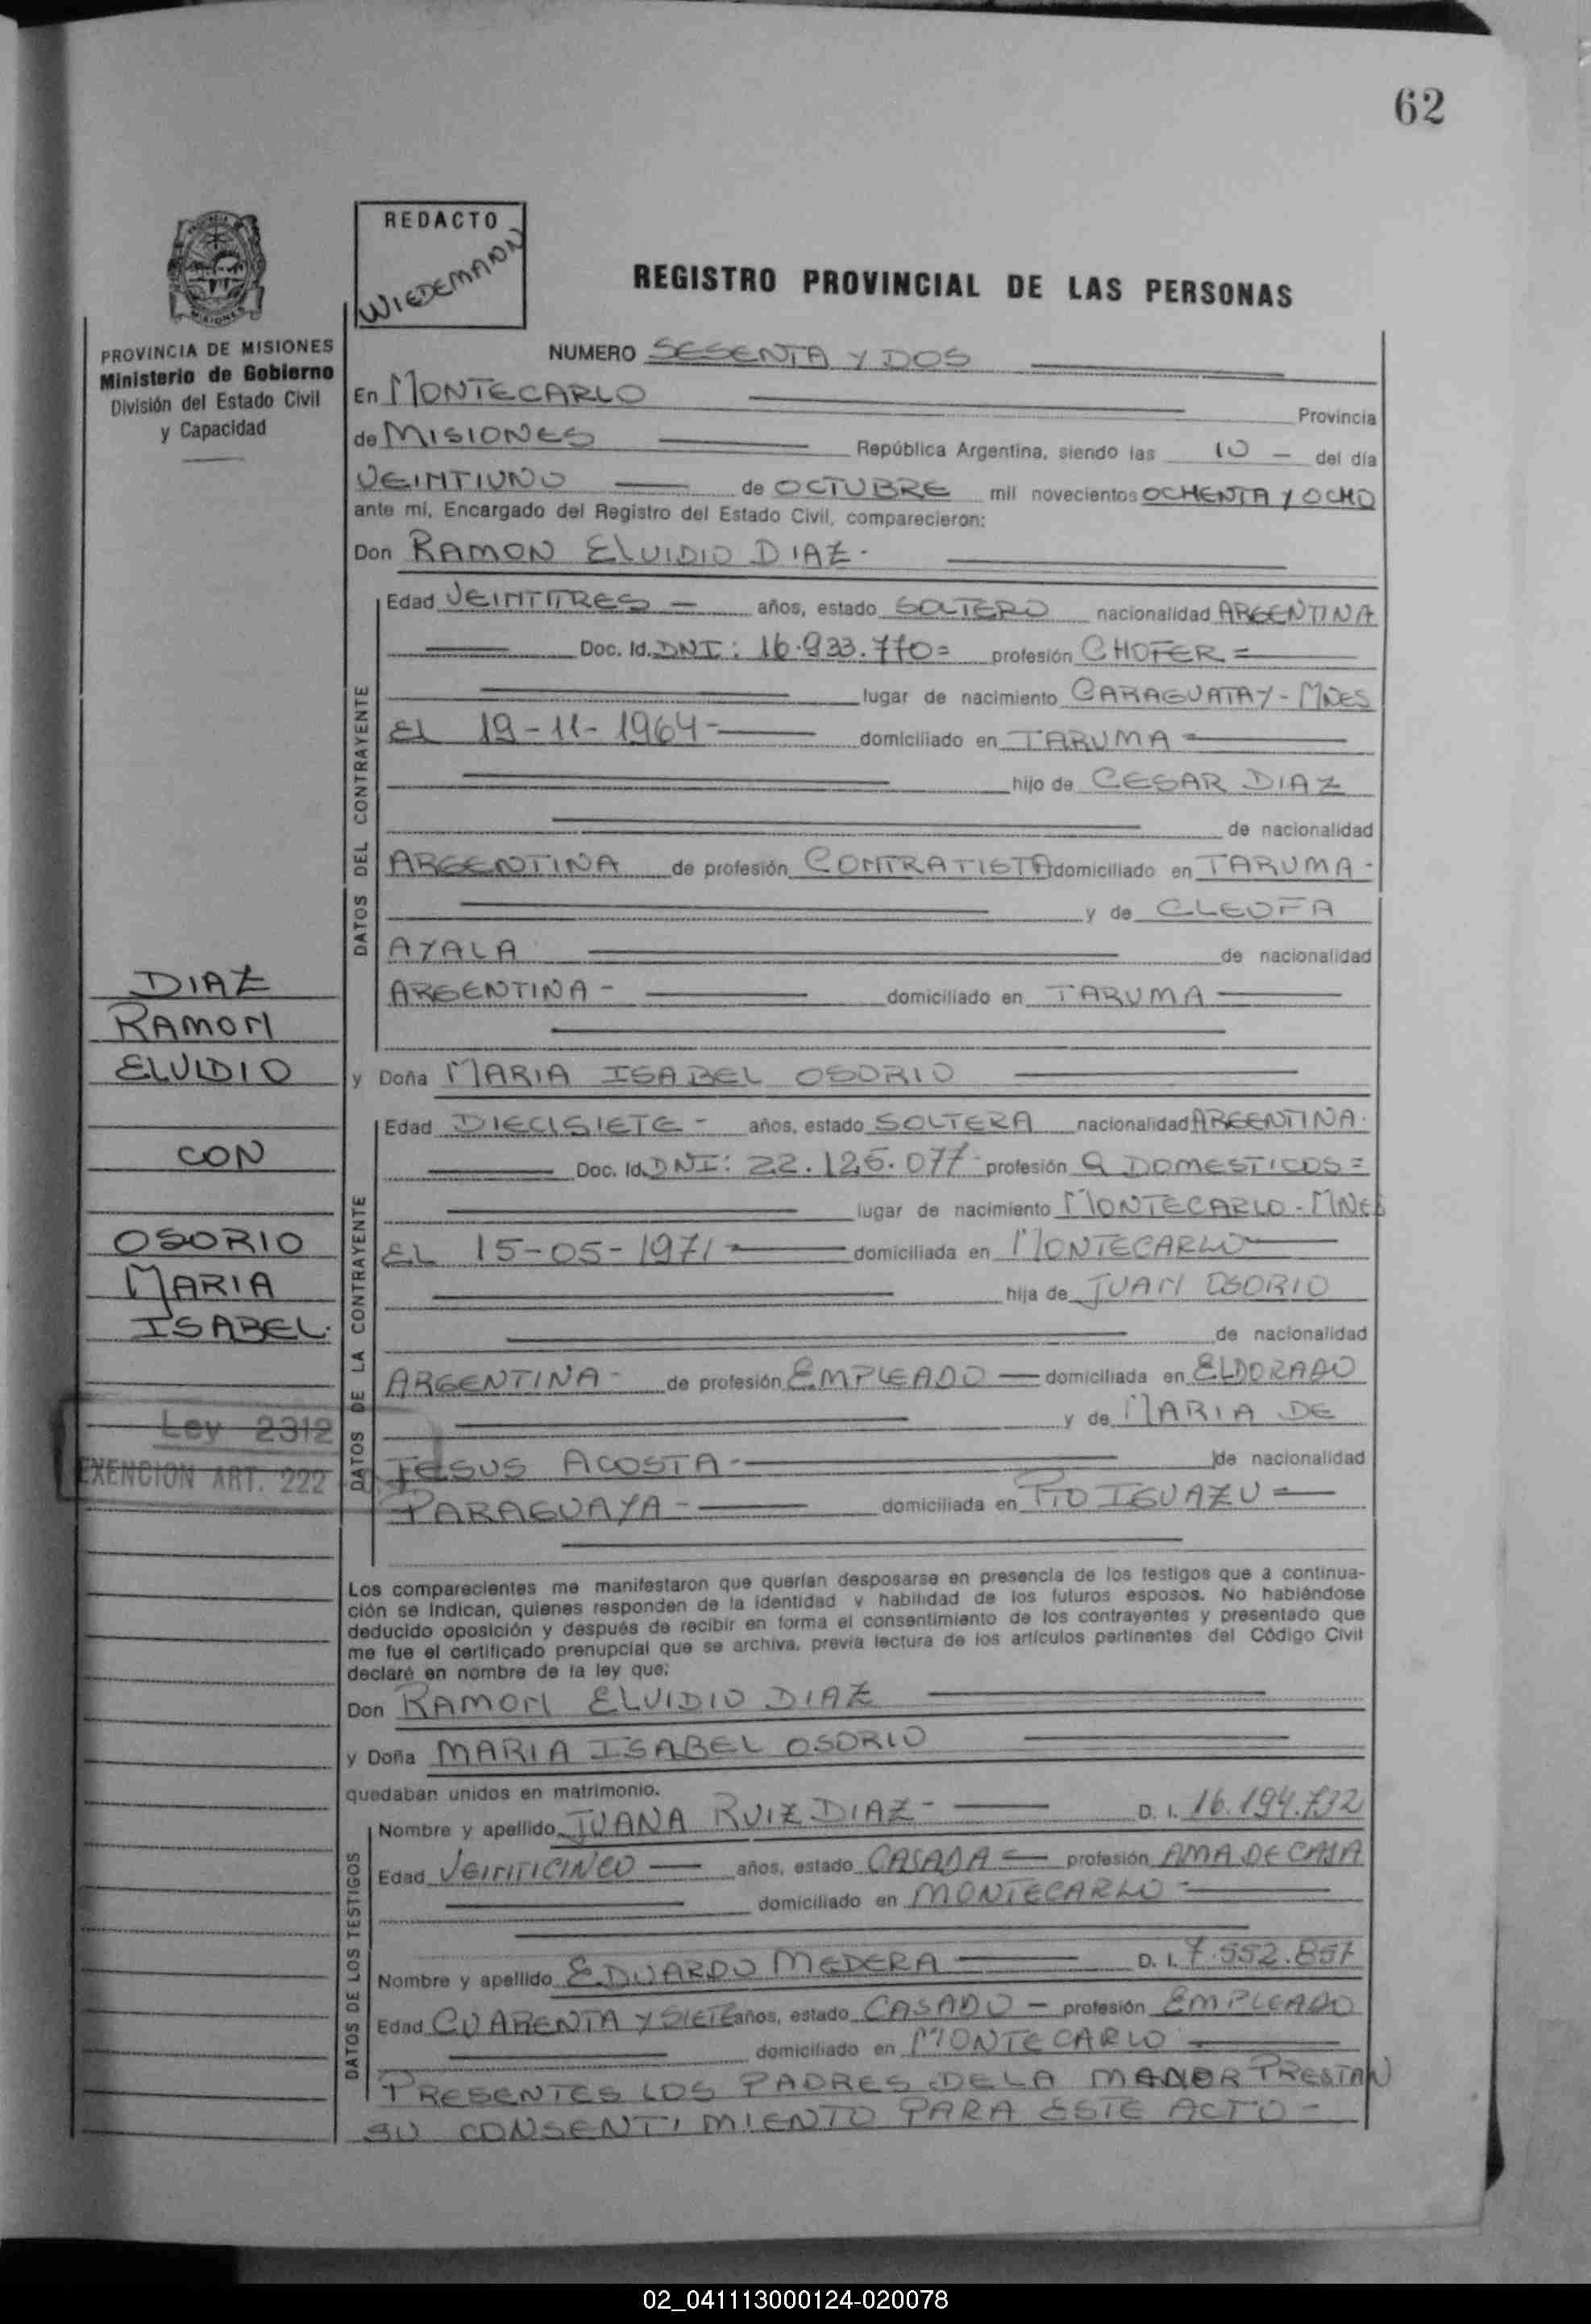 62
REDACTO
WIEDEMANN
REGISTRO PROVINCIAL DE LAS PERSONAS
PROVINCIA DE MISIONES
Ministerio de Gobierno
División del Estado Civil
y Capacidad
NUMERO SESENTA Y DOS
En MONTECARLO Provincia
de MISIONES República Argentina, siendo las 10 - del día
VEINTIUNO de OCTUBRE mil novecientos OCHENTA Y OCHO
ante mí, Encargado del Registro del Estado Civil, comparecieron:
Don RAMON ELVIDIO DIAZ-
DATOS DEL CONTRAYENTE
Edad VEINTITRES - años, estado SOLTERO nacionalidad ARGENTINA
Doc. Id. DNI: 16.933.770= profesión CHOFER =
lugar de nacimiento CARAGUATAY - MNES
EL 19-11-1964- domiciliado en TARUMA -
hijo de CESAR DIAZ
de nacionalidad
ARGENTINA de profesión CONTRATISTA domiciliado en TARUMA -
y de CLEOFA
AYALA de nacionalidad
ARGENTINA - domiciliado en TARUMA
y Doña MARIA ISABEL OSORIO
DATOS DE LA CONTRAYENTE
Edad DIECISIETE - años, estado SOLTERA nacionalidad ARGENTINA.
Doc. Id. DNI: 22.126.077- profesión Q DOMESTICOS =
lugar de nacimiento MONTECARLO - MNES
EL 15-05-1971- domiciliada en MONTECARLO
hija de JUAN OSORIO
de nacionalidad
ARGENTINA - de profesión EMPLEADO - domiciliada en ELDORADO
y de MARIA DE
JESUS ACOSTA - de nacionalidad
PARAGUAYA - domiciliada en PTO IGUAZU -
DIAZ
RAMON
ELVIDIO
CON
OSORIO
MARIA
ISABEL.
Ley 2312
EXENCION ART. 222
Los comparecientes me manifestaron que querían desposarse en presencia de los testigos que a continua-
ción se indican, quienes responden de la identidad y habilidad de los futuros esposos. No habiéndose
deducido oposición y después de recibir en forma el consentimiento de los contrayentes y presentado que
me fue el certificado prenupcial que se archiva, previa lectura de los artículos pertinentes del Código Civil
declaré en nombre de la ley que:
Don RAMON ELVIDIO DIAZ
y Doña MARIA ISABEL OSORIO
quedaban unidos en matrimonio.
DATOS DE LOS TESTIGOS
Nombre y apellido JUANA RUIZ DIAZ - D. I. 16.194.732
Edad VEINTICINCO - años, estado CASADA - profesión AMA DE CASA
domiciliado en MONTECARLO -
Nombre y apellido EDUARDO MEDERA D. I. 7.552.857
Edad CUARENTA Y SIETE años, estado CASADO - profesión EMPLEADO
domiciliado en MONTECARLO
PRESENTES LOS PADRES DE LA MENOR PRESTAN
SU CONSENTIMIENTO PARA ESTE ACTO -
02_041113000124-020078